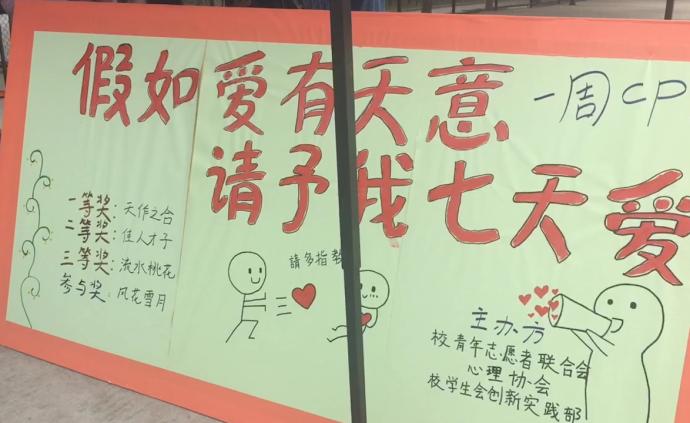 假如爱有天意
一周CP
请予我七天爱
一等奖：天作之合
二等奖：佳人才子
三等奖：流水桃花
参与奖：风花雪月
請多指教
主办方
校青年志愿者联合会
心理协会
校学生会创新实践部